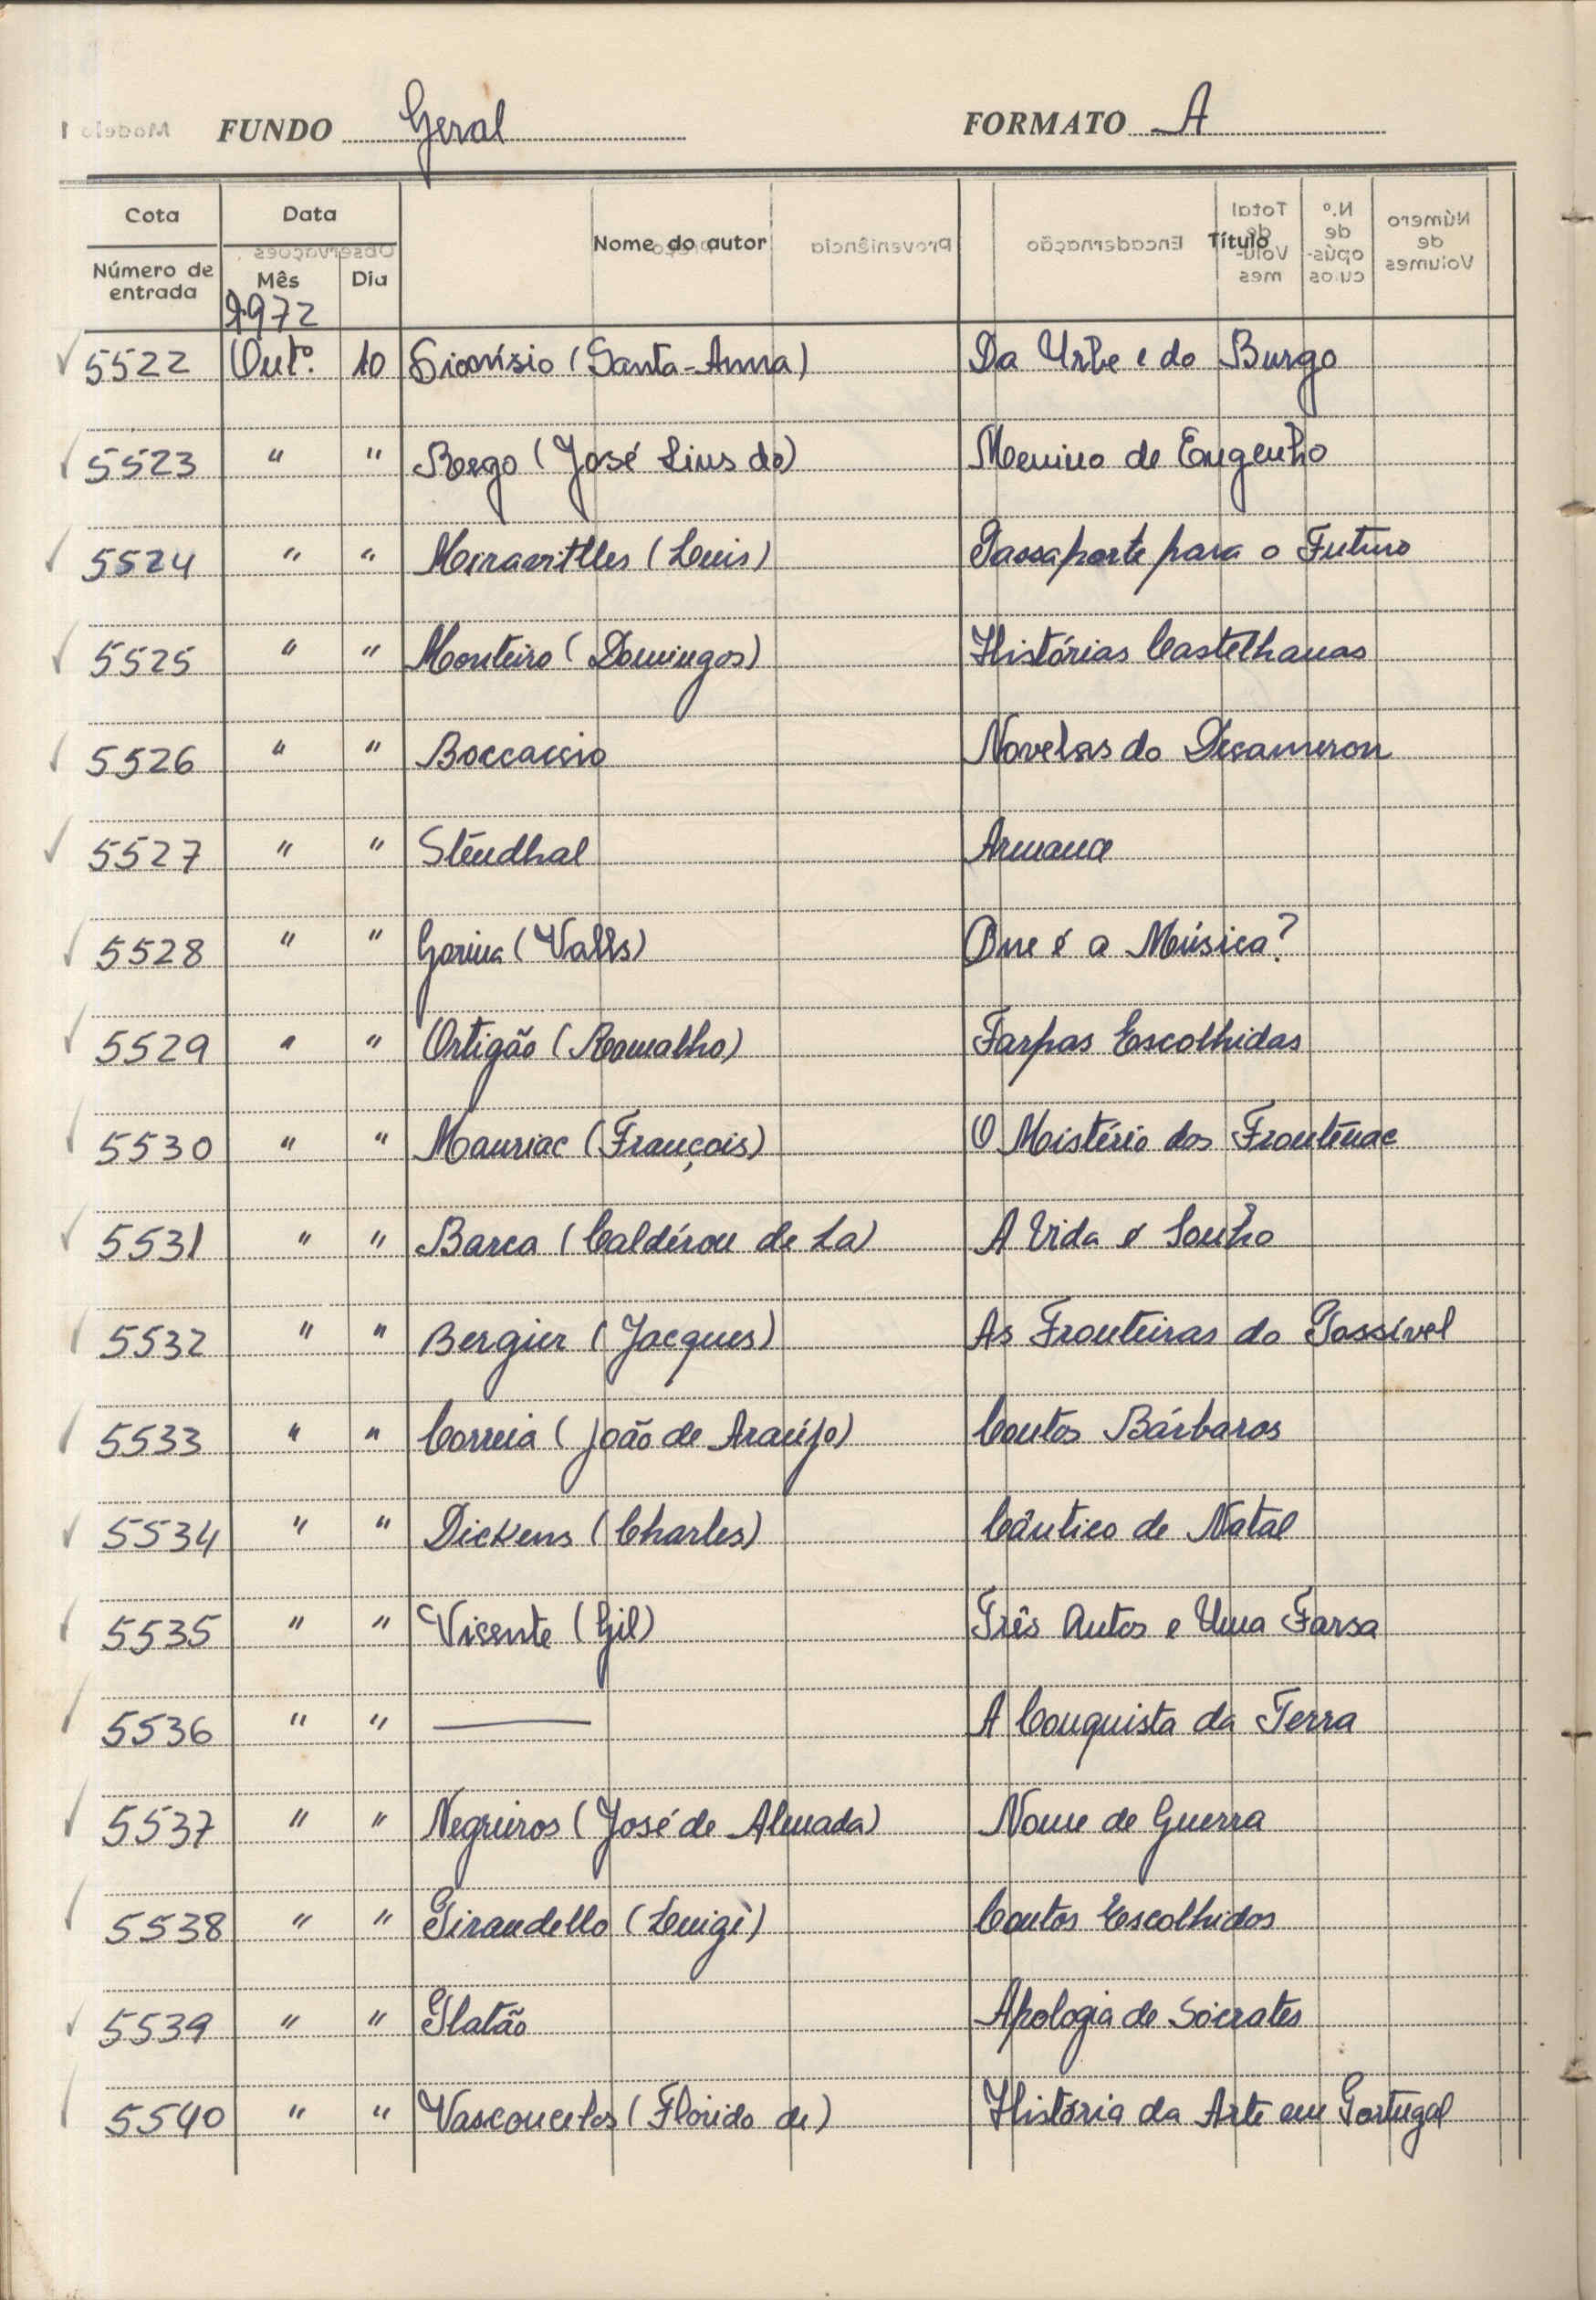 FUNDO Geral FORMATO A
Cota Data Nome do autor Título
Número de entrada Mês Dia
1972
5522 Outº. 10 Dionísio (Santa-Anna) Da Urbe e do Burgo
5523 " " Rego (José Lins do) Menino de Engenho
5524 " " (Luis) Passaporte para o Futuro
5525 " " Monteiro (Domingos) Histórias Castelhanas
5526 " " Boccaccio Novelas do Decameron
5527 " " Stendhal
5528 " " Gorina (Valls) Que é a Música?
5529 " " Ortigão (Ramalho) Farpas Escolhidas
5530 " " Mauriac (François) O Mistério dos Frontenac
5531 " " Barca (Caldéron de La) A Vida é Sonho
5532 " " Bergier (Jacques) As Fronteiras do Possível
5533 " " Correia (João de Araújo) Contos Bárbaros
5534 " " Dickens (Charles) Cântico de Natal
5535 " " Vicente (Gil) Três Autos e Uma Farsa
5536 " " — A Conquista da Terra
5537 " " Negreiros (José de Almada) Nome de Guerra
5538 " " Pirandello (Luigi) Contos Escolhidos
5539 " " Platão Apologia de Sócrates
5540 " " Vasconcelos (Florido de) História da Arte em Portugal